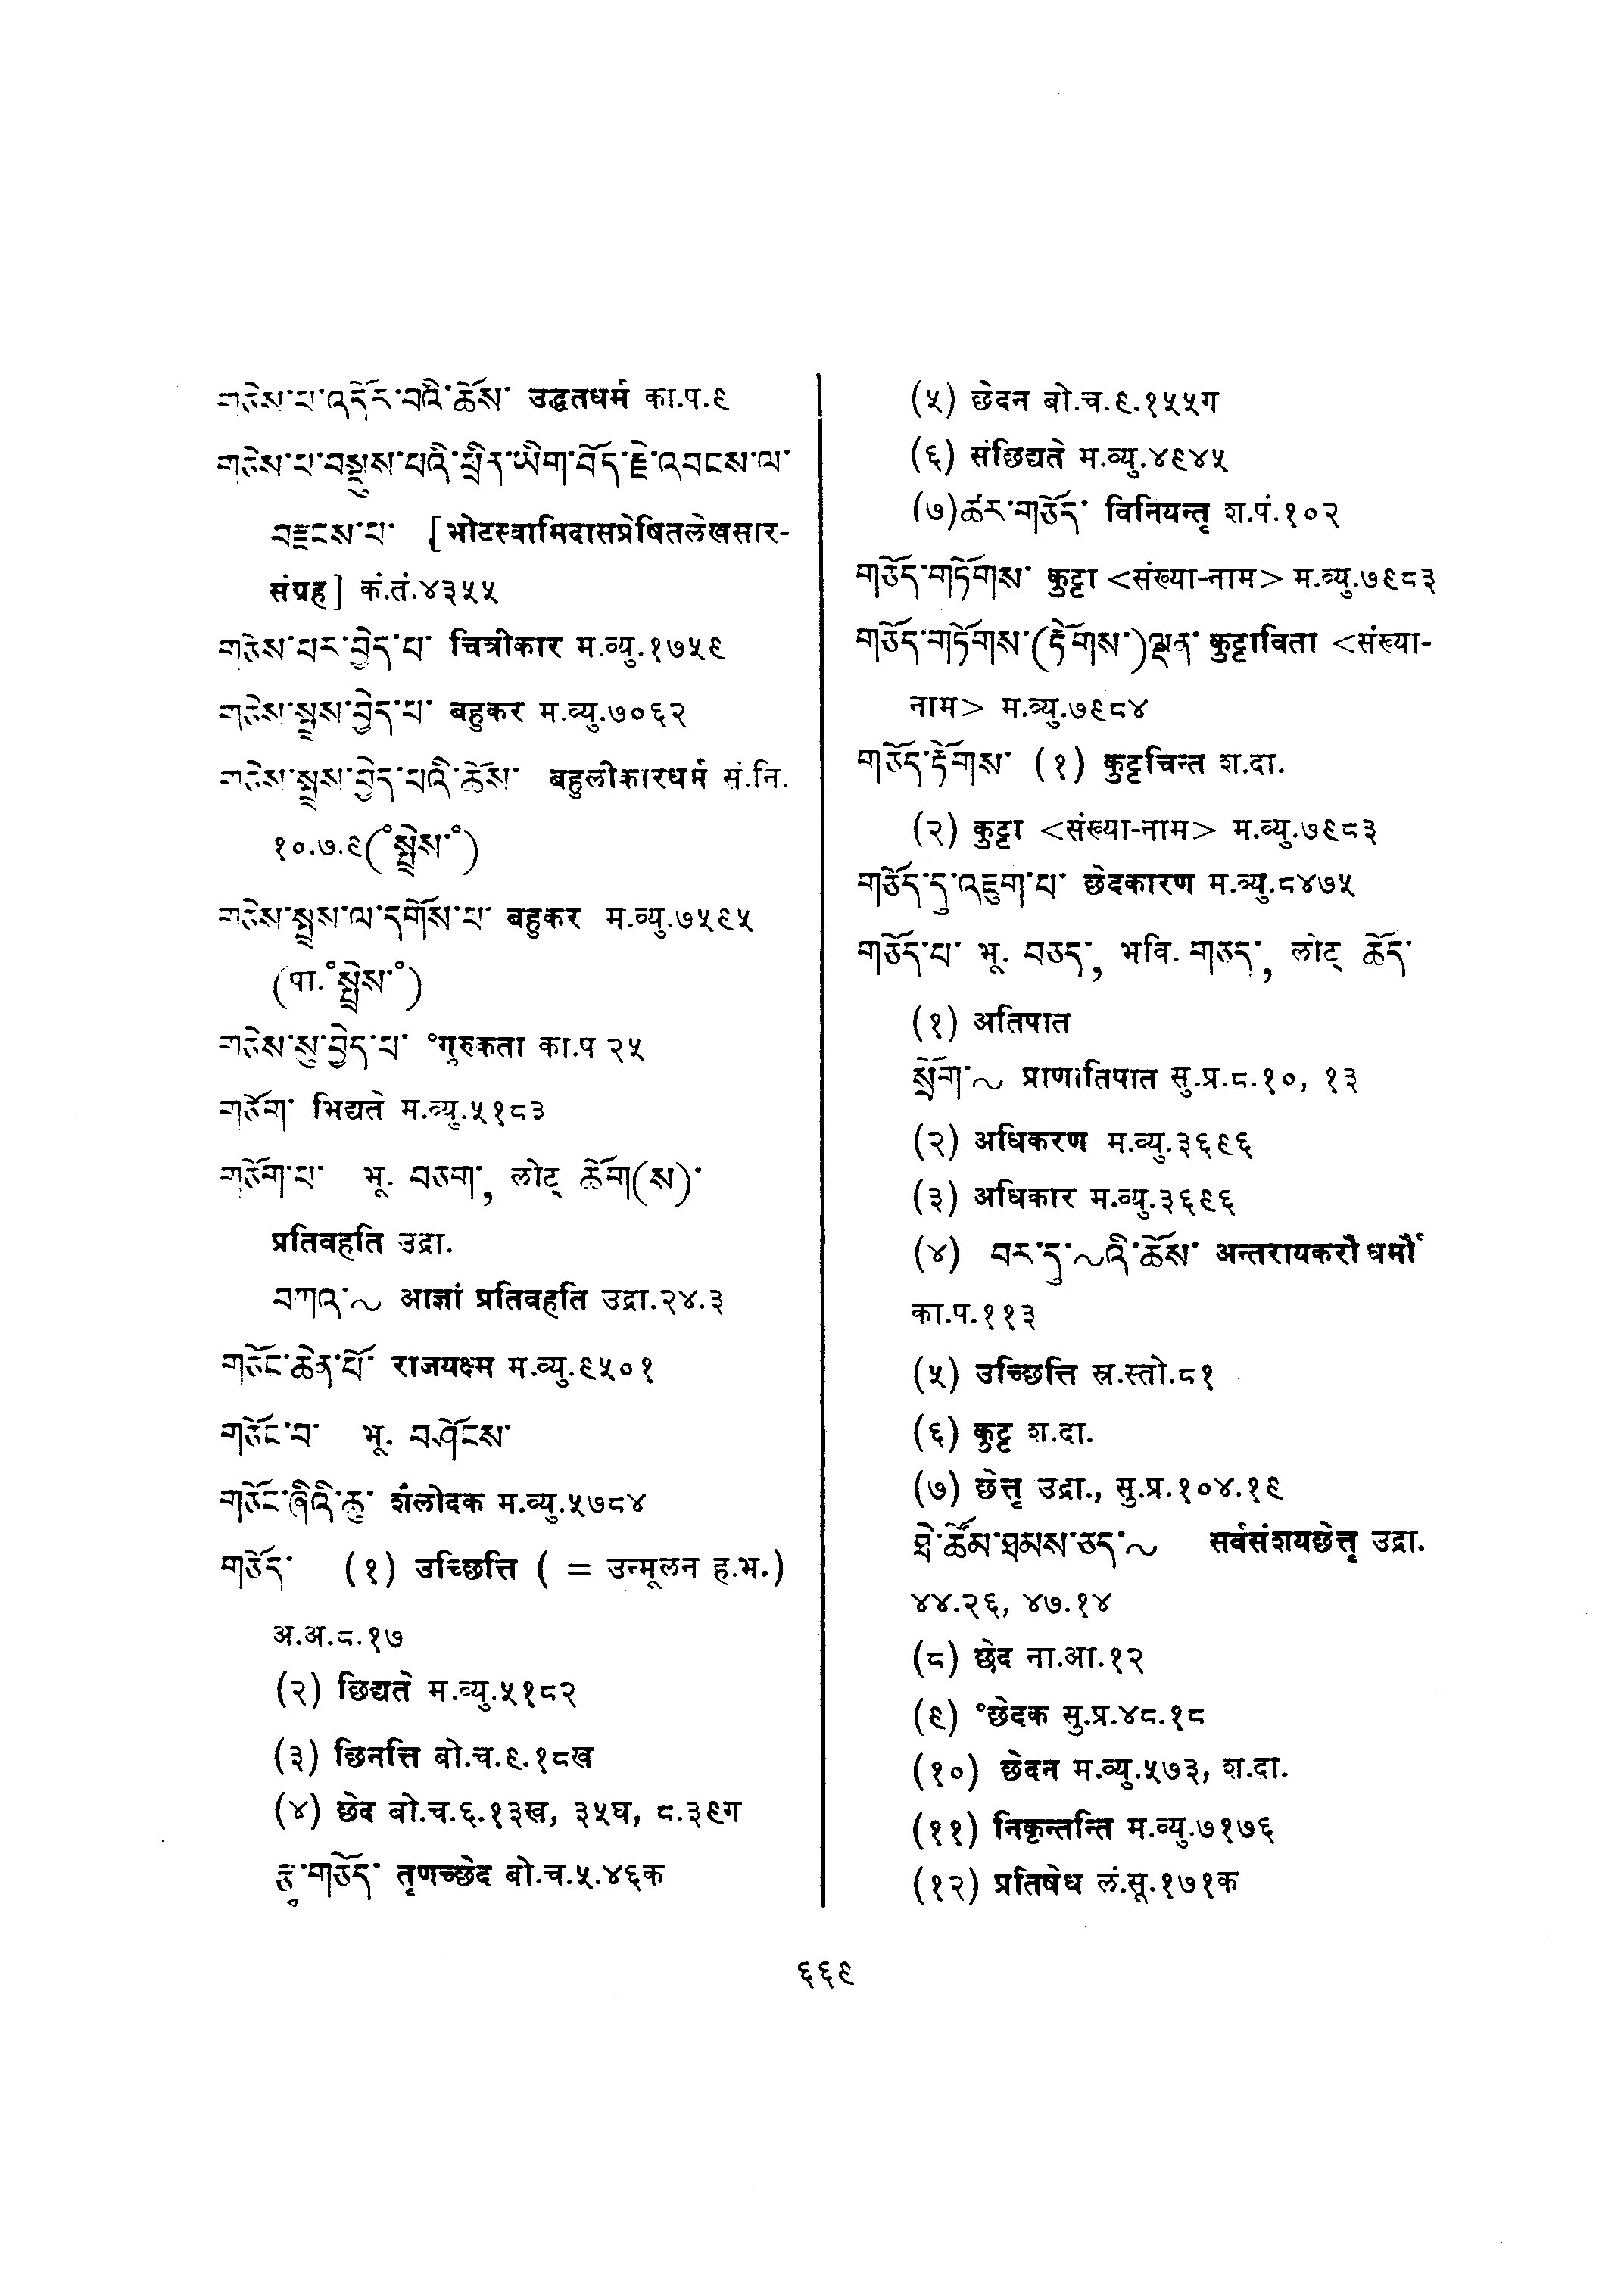 གཅེས་པ་འདོར་བའི་ཆོས་ उद्धतधर्म का.प.९
གཅེས་པ་བསྡུས་པའི་ཕྲིན་ཡིག་བོད་རྗེ་འབངས་ལ་
བརྫངས་པ་ [भोटस्वामिदासप्रेषितलेखसार-
संग्रह] कं.तं.४३५५
གཅེས་པར་བྱེད་པ་ चित्रीकार म.व्यु.१७५९
གཅེས་སྤྲས་བྱེད་པ་ बहुकर म.व्यु.७०६२
གཅེས་སྤྲས་བྱེད་པའི་ཆོས་ बहुलीकारधर्म सं.नि.
१०.७.९(°སྤྲེས་°)
གཅེས་སྤྲས་ལ་དགོས་པ་ बहुकर म.व्यु.७५९५
(पा.°སྤྲེས་°)
གཅེས་སུ་བྱེད་པ་ °गुरुकता का.प २५
གཅོག་ भिद्यते म.व्यु.५१८३
གཅོག་པ་ भू. བཅག་, लोट् ཆོག(ས)་
प्रतिवहति उद्रा.
བཀའ་~ आज्ञां प्रतिवहति उद्रा.२४.३
གཅོང་ཆེན་པོ་ राजयक्ष्म म.व्यु.९५०१
གཅོང་བ་ भू. བཤོངས་
གཅོང་ཞིའི་ཆུ་ शंलोदक म.व्यु.५७८४
གཅོད་ (१) उच्छित्ति ( = उन्मूलन ह.भ.)
अ.अ.८.१७
(२) छिद्यते म.व्यु.५१८२
(३) छिनत्ति बो.च.९.१८ख
(४) छेद बो.च.६.१३ख, ३५घ, ८.३९ग
རྩྭ་གཅོད་ तृणच्छेद बो.च.५.४६क
(५) छेदन बो.च.९.१५५ग
(६) संछिद्यते म.व्यु.४९४५
(७)ཚར་གཅོད་ विनियन्तृ श.पं.१०२
གཅོད་གཏོགས་ कुट्टा <संख्या-नाम> म.व्यु.७९८३
གཅོད་གཏོགས་(རྟོགས་)ལྡན་ कुट्टाविता <संख्या-
नाम> म.व्यु.७९८४
གཅོད་རྟོགས་ (१) कुट्टचिन्त श.दा.
(२) कुट्टा <संख्या-नाम> म.व्यु.७९८३
གཅོད་དུ་འཇུག་པ་ छेदकारण म.व्यु.८४७५
གཅོད་པ་ भू. བཅད་, भवि. གཅད་, लोट् ཆོད་
(१) अतिपात
སྲོག་~ प्राणातिपात सु.प्र.८.१०, १३
(२) अधिकरण म.व्यु.३६९६
(३) अधिकार म.व्यु.३६९६
(४) བར་དུ་~འི་ཆོས་ अन्तरायकरौ धर्मौ
का.प.११३
(५) उच्छित्ति स्र.स्तो.८१
(६) कुट्ट श.दा.
(७) छेत्तृ उद्रा., सु.प्र.१०४.१९
ཐེ་ཚོམ་ཐམས་ཅད་~ सर्वसंशयछेत्तृ उद्रा.
४४.२६, ४७.१४
(८) छेद ना.आ.१२
(९) °छेदक सु.प्र.४८.१८
(१०) छेदन म.व्यु.५७३, श.दा.
(११) निकृन्तन्ति म.व्यु.७१७६
(१२) प्रतिषेध लं.सू.१७१क
६६९